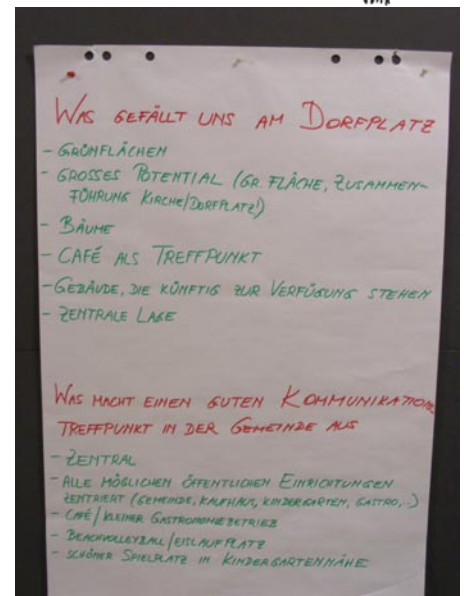 WAS GEFÄLLT UNS AM DORFPLATZ
- GRÜNFLÄCHEN
- GROSSES POTENTIAL (GR. FLÄCHE, ZUSAMMEN-
FÜHRUNG KIRCHE/DORFPLATZ!)
- BÄUME
- CAFÉ ALS TREFFPUNKT
- GEBÄUDE, DIE KÜNFTIG ZUR VERFÜGUNG STEHEN
- ZENTRALE LAGE
WAS MACHT EINEN GUTEN KOMMUNIKATIONS
TREFFPUNKT IN DER GEMEINDE AUS
- ZENTRAL
- ALLE MÖGLICHEN ÖFFENTLICHEN EINRICHTUNGEN
ZENTRIERT (GEMEINDE, KAUFHAUS, KINDERGARTEN, GASTRO,..)
- CAFÉ/KLEINER GASTRONOMIEBETRIEB
- BEACHVOLLEYBALL/EISLAUFPLATZ
- SCHÖNER SPIELPLATZ IN KINDERGARTENNÄHE